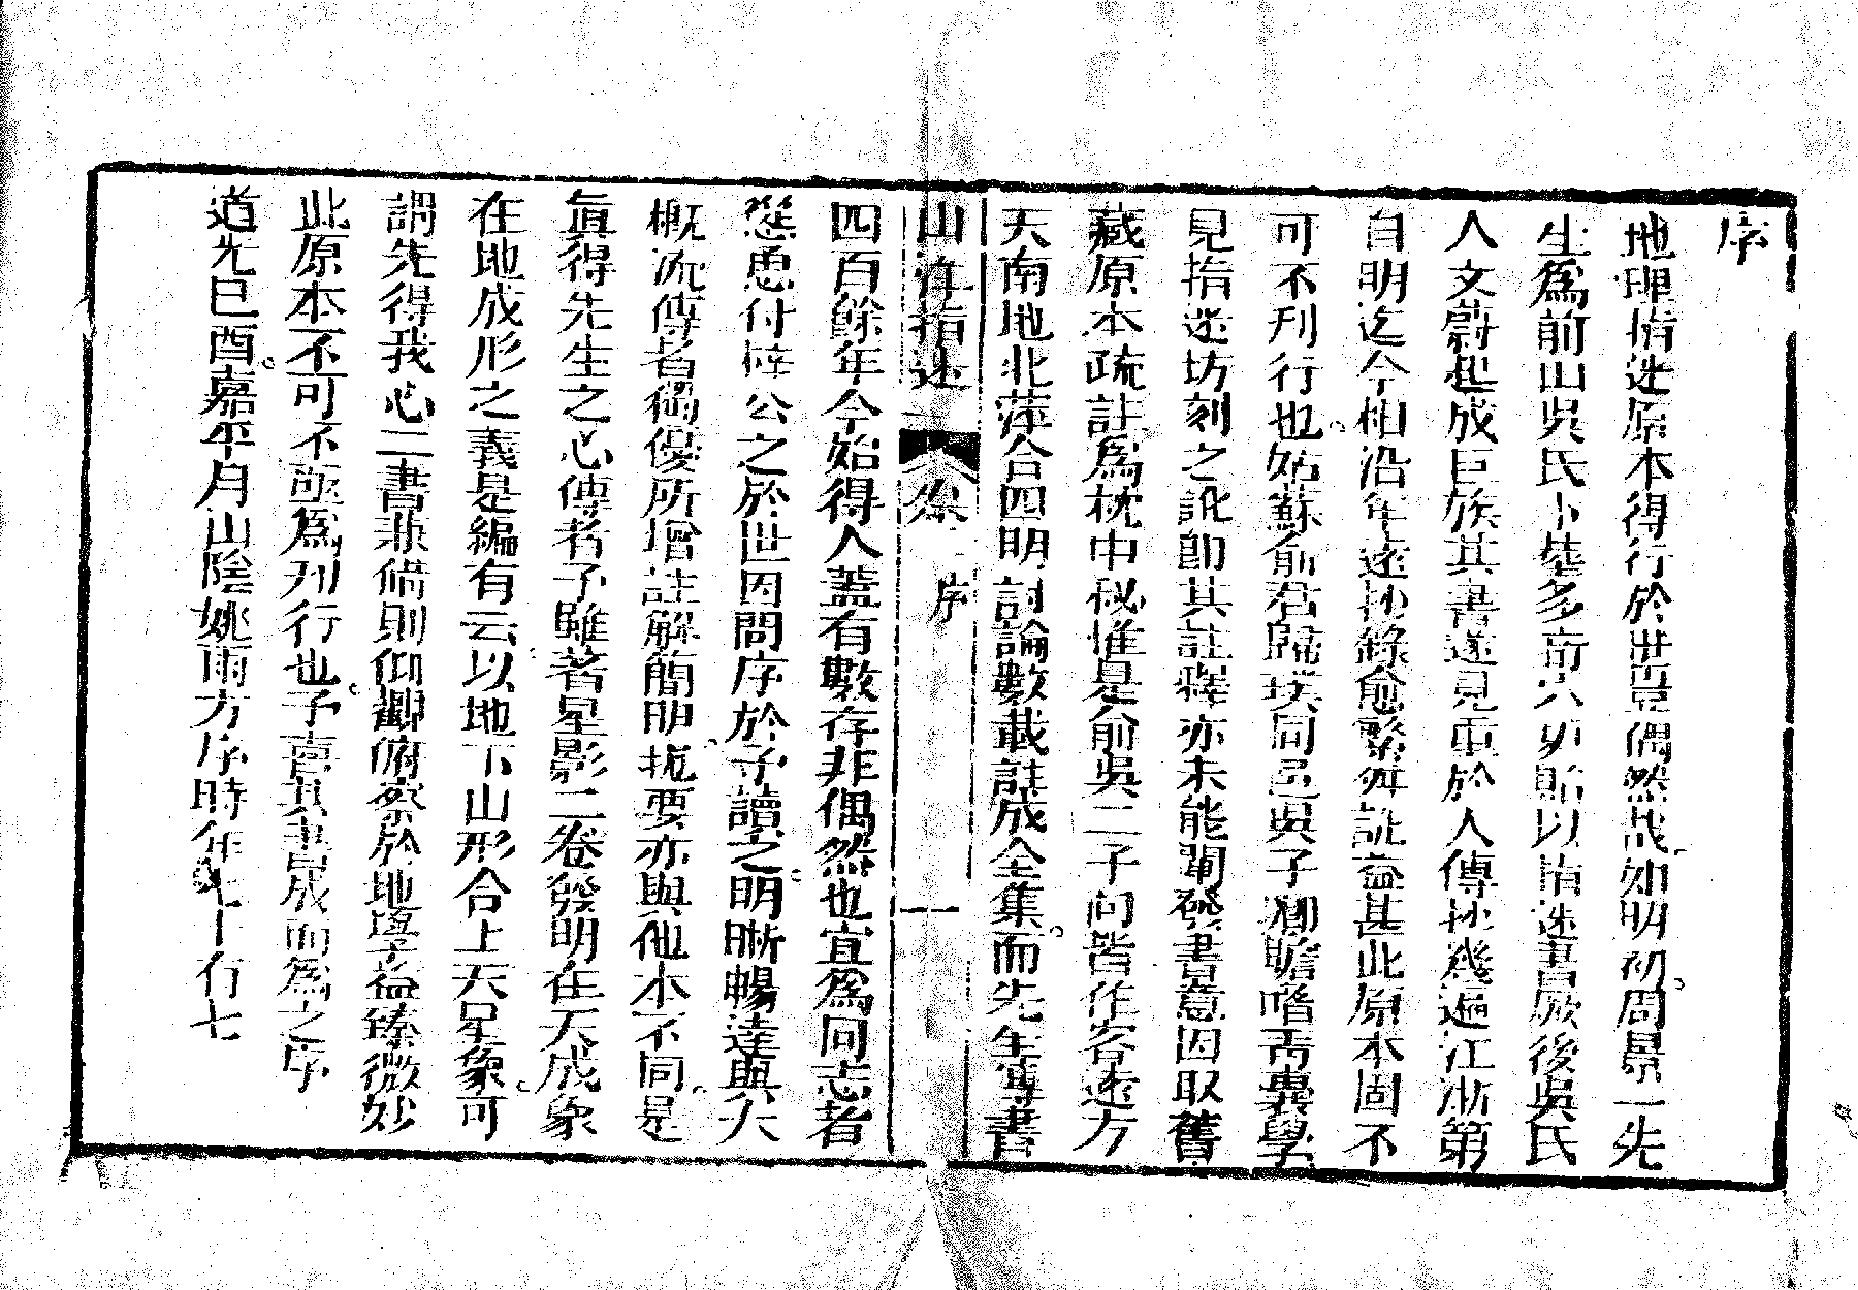 序
地理指迷原本得行於世豈偶然哉如明初周景一先
生爲前山吳氏卜塋多前穴以貽以指迷書厥後吳氏
人文蔚起成巨族其書遂見重於人傳抄幾遍江浙第
自明迄今相沿年遠抄錄愈繁舛訛益甚此原本固不
可不刊行也姑蘇俞君歸璞同邑吳子瀚瞻喈雨異學
見指迷坊刻之訛卽其註釋亦未能闡發書意因取舊
藏原本疏註爲枕中秘惟是俞吳二子向皆作客遠方
天南地北萍合四明討論數載註成全集而先生專書
山洋指迷 卷 序 一
四百餘年今始得人蓋有數存非偶然也宜爲同志者
慫恿付梓公之於世因問序於予讀之明晰暢達與夫
概流傳者獨優所增註解簡明扼要亦與他本不同是
眞得先生之心傳者予雖著星影二卷發明在天成象
在地成形之義是編有云以地下山形合上天星象可
謂先得我心二書兼備則仰觀俯察於地學益臻微妙
此原本不可不亟爲刊行也予喜其書成而爲之序
道光己酉嘉平月山陰姚雨方序時年七十有七